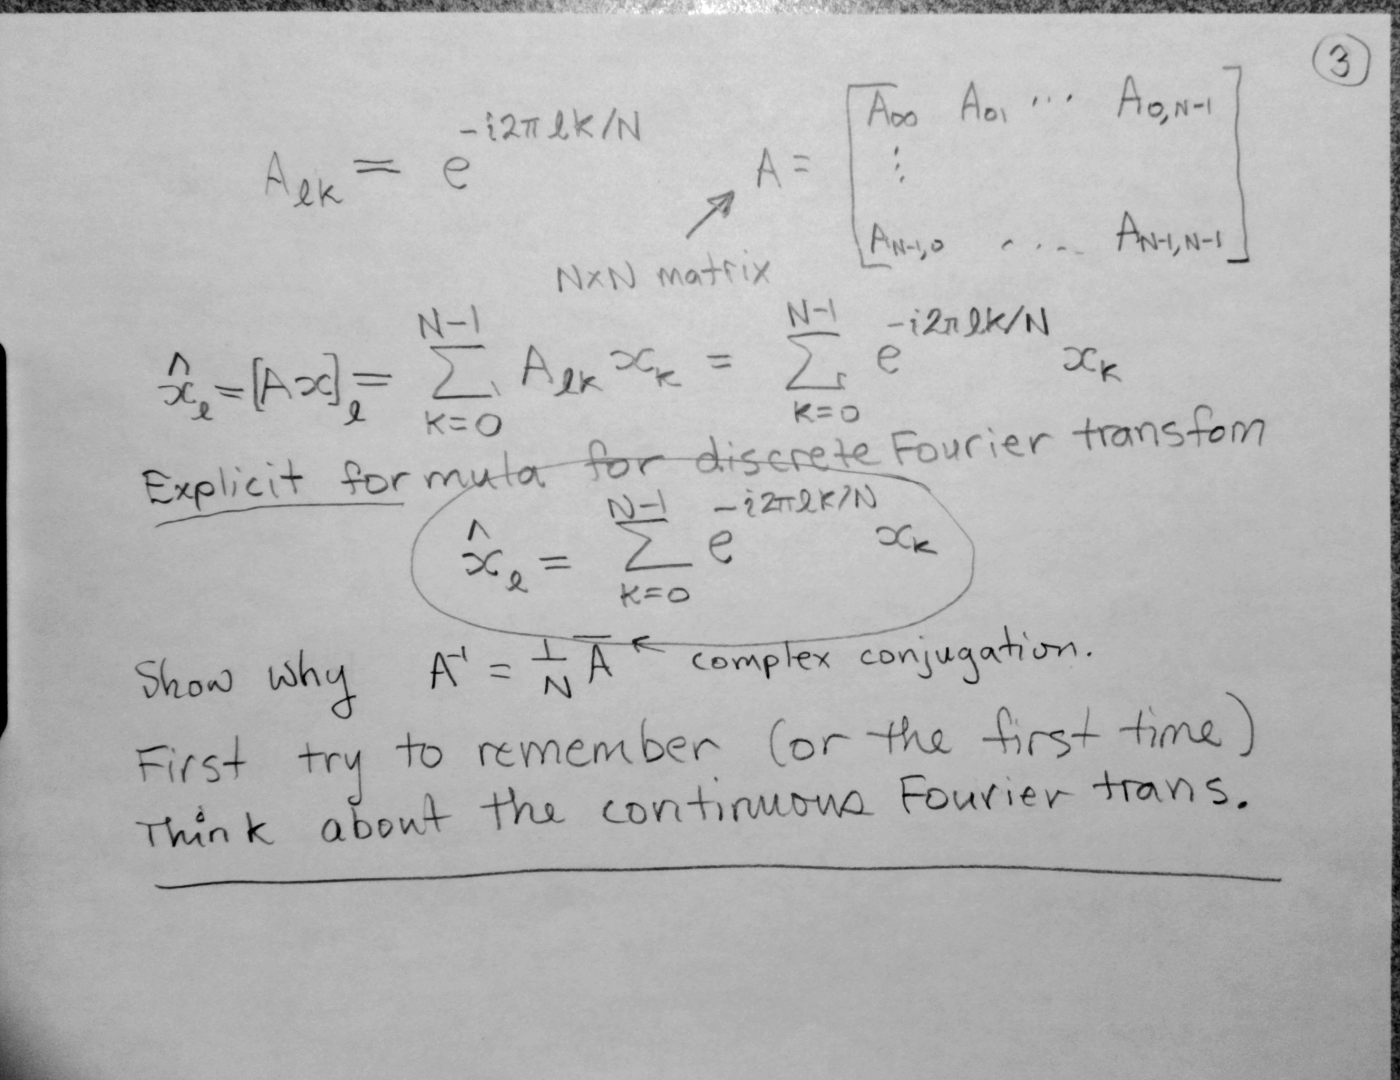 ③
A_{ℓk} = e^{-i2πℓk/N}    A = [A_{00} A_{01} ⋯ A_{0,N-1}
⋮
A_{N-1,0} ⋯ A_{N-1,N-1}]
N×N matrix
x̂_ℓ = [Ax]_ℓ = ∑_{k=0}^{N-1} A_{ℓk} x_k = ∑_{k=0}^{N-1} e^{-i2πℓk/N} x_k
Explicit formula for discrete Fourier transfom
x̂_ℓ = ∑_{k=0}^{N-1} e^{-i2πℓk/N} x_k
Show why A^{-1} = 1/N A̅ ← complex conjugation.
First try to remember (or the first time)
Think about the continuous Fourier trans.